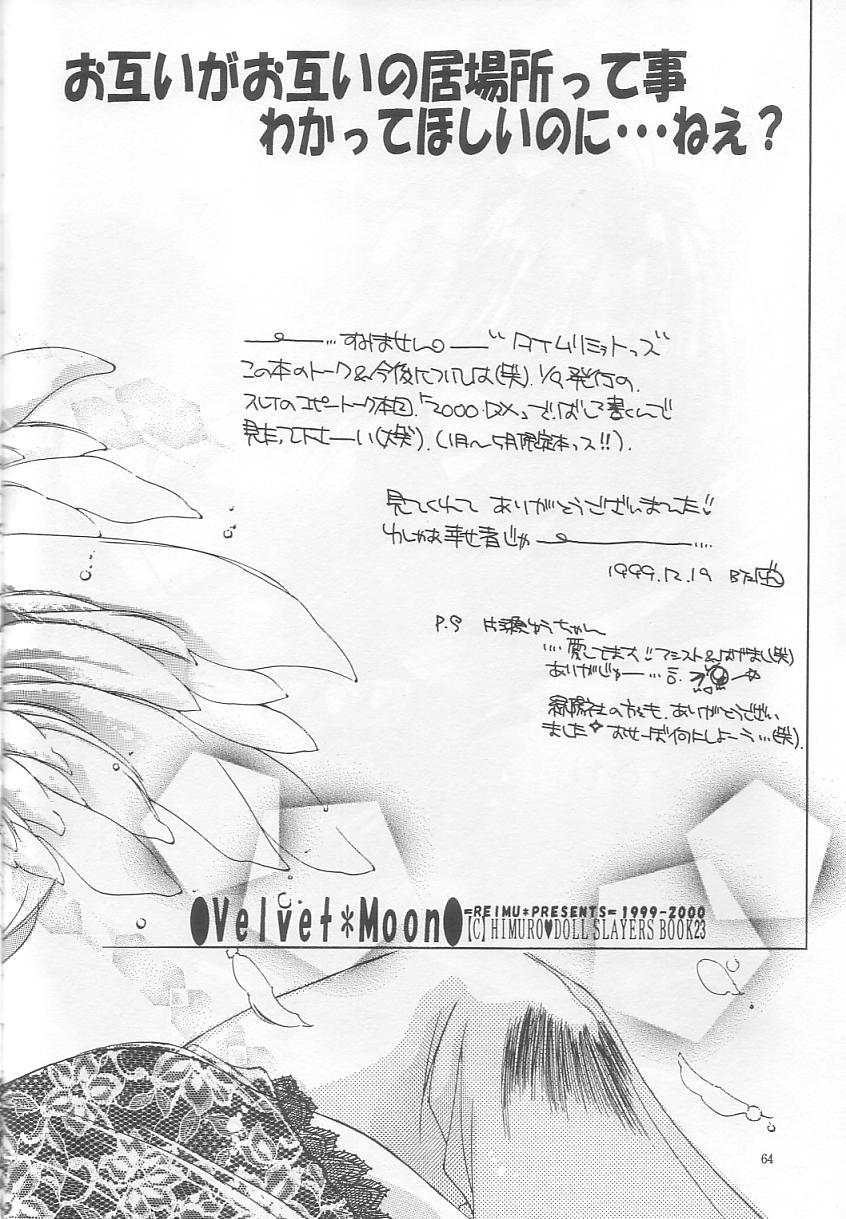 お互いがお互いの居場所って事
わかってほしいのに・・・ねぇ？
・・・すみません。 “タイムリミットっズ”
この本のトーク&今後については(笑). 1/9発行の.
スレTのコピートーク本2.「2000・DX」で.ばしる書くんで
見たって下せーい(大笑). (1月〜5月限定本っス!!).
見てくれて ありがとうございました!!
わしゃあ幸せ者じゃ ・・・・
1999.12.19
P.S 片瀬ゆうちゃん
・・・・愛してます!! アシスト&はげまし(笑)
ありがじゅー・・・
緑陽社の方々も.ありがとうござい
ました おせーぼ何にしよーう・・・(笑).
●Velvet*Moon●
=REIMU*PRESENTS= 1999-2000
【C】HIMURO♥DOLL SLAYERS BOOK23
64